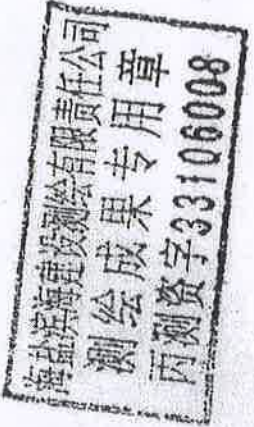 海盐滨海建设测绘有限责任公司
测绘成果专用章
丙测资字33106008